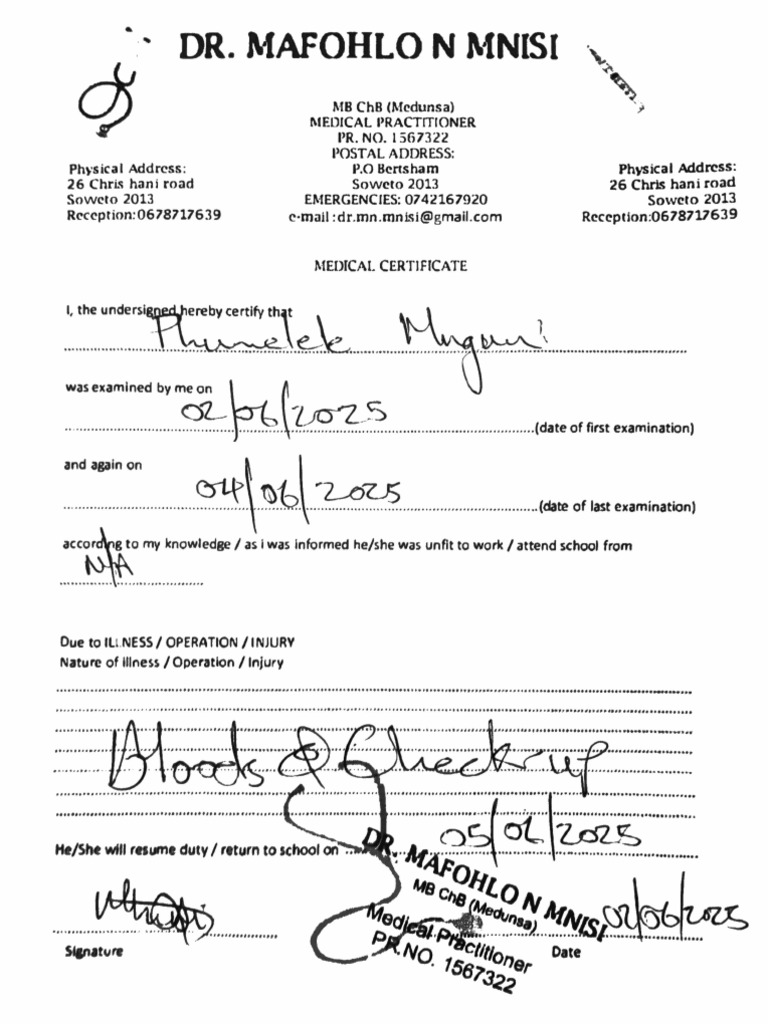 DR. MAFOHLO N MNISI
MB ChB (Medunsa)
MEDICAL PRACTITIONER
PR. NO. 1567322
POSTAL ADDRESS:
P.O Bertsham
Soweto 2013
EMERGENCIES: 0742167920
e-mail :dr.mn.mnisi@gmail.com
Physical Address:
26 Chris hani road
Soweto 2013
Reception:0678717639
Physical Address:
26 Chris hani road
Soweto 2013
Reception:0678717639
MEDICAL CERTIFICATE
I, the undersigned hereby certify that
Phumelele
was examined by me on
02/06/2025
(date of first examination)
and again on
04/06/2025
(date of last examination)
according to my knowledge / as i was informed he/she was unfit to work / attend school from
N/A
Due to ILLNESS / OPERATION / INJURY
Nature of illness / Operation / Injury
Bloods & Check-up
He/She will resume duty / return to school on 05/06/2025
DR. MAFOHLO N MNISI
MB ChB (Medunsa)
Medical Practitioner
PR.NO. 1567322
02/06/2025
Signature
Date